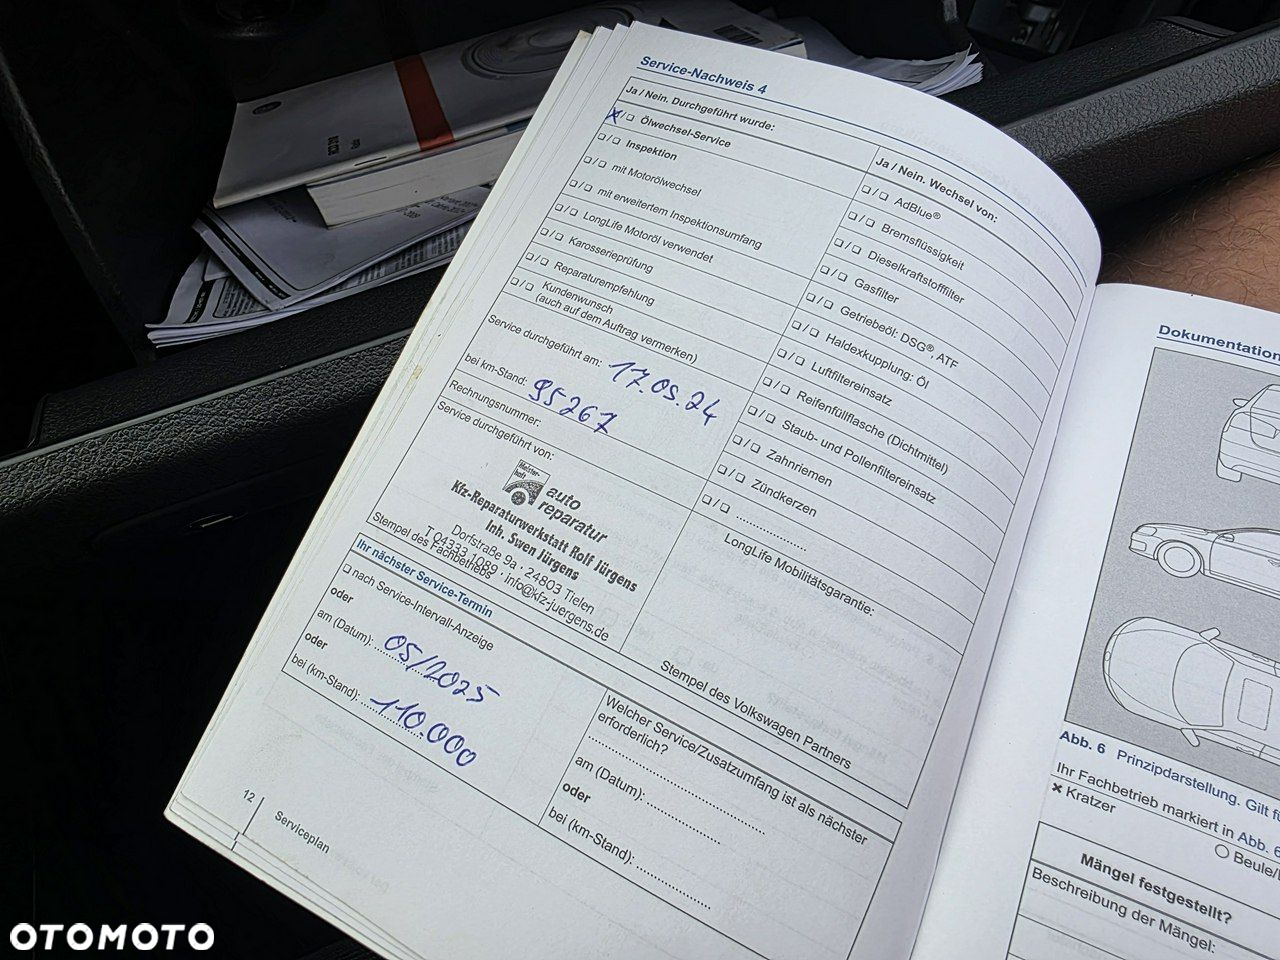 Service-Nachweis 4
Ja / Nein. Durchgeführt wurde:
x/❏ Ölwechsel-Service
❏ / ❏ Inspektion
❏ / ❏ mit Motorölwechsel
❏ / ❏ mit erweitertem Inspektionsumfang
❏ / ❏ LongLife Motoröl verwendet
❏ / ❏ Karosserieprüfung
❏ / ❏ Reparaturempfehlung
❏ / ❏ Kundenwunsch
(auch auf dem Auftrag vermerken)
Service durchgeführt am: 17.05.24
bei km-Stand: 95267
Rechnungsnummer:
Service durchgeführt von:
Meister-
haft
auto
reparatur
Kfz-Reparaturwerkstatt Rolf Jürgens
Inh. Swen Jürgens
Dorfstraße 9a · 24803 Tielen
T 04333 1089 · info@kfz-juergens.de
Stempel des Fachbetriebs
Ja / Nein. Wechsel von:
❏ / ❏ AdBlue®
❏ / ❏ Bremsflüssigkeit
❏ / ❏ Dieselkraftstofffilter
❏ / ❏ Gasfilter
❏ / ❏ Getriebeöl: DSG®, ATF
❏ / ❏ Haldexkupplung: Öl
❏ / ❏ Luftfiltereinsatz
❏ / ❏ Reifenfüllflasche (Dichtmittel)
❏ / ❏ Staub- und Pollenfiltereinsatz
❏ / ❏ Zahnriemen
❏ / ❏ Zündkerzen
❏ / ❏ ................
LongLife Mobilitätsgarantie:
Stempel des Volkswagen Partners
Ihr nächster Service-Termin
❏ nach Service-Intervall-Anzeige
oder
am (Datum): 05/2025
oder
bei (km-Stand): 110.000
Welcher Service/Zusatzumfang ist als nächster
erforderlich?
am (Datum):
oder
bei (km-Stand):
12
Serviceplan
Dokumentation
Abb. 6 Prinzipdarstellung. Gilt
Ihr Fachbetrieb markiert in Abb. 6
× Kratzer
○ Beule/
Mängel festgestellt?
Beschreibung der Mängel:
OTOMOTO